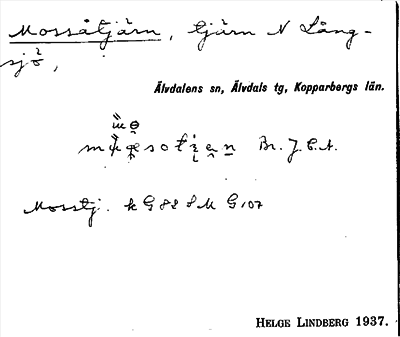 Mossåtjärn, tjärn N Lång-
sjö,
Älvdalens sn, Älvdals tg, Kopparbergs län.
Br. J.E.A.
Mosstj. k G 82 S M G 107
HELGE LINDBERG 1937.